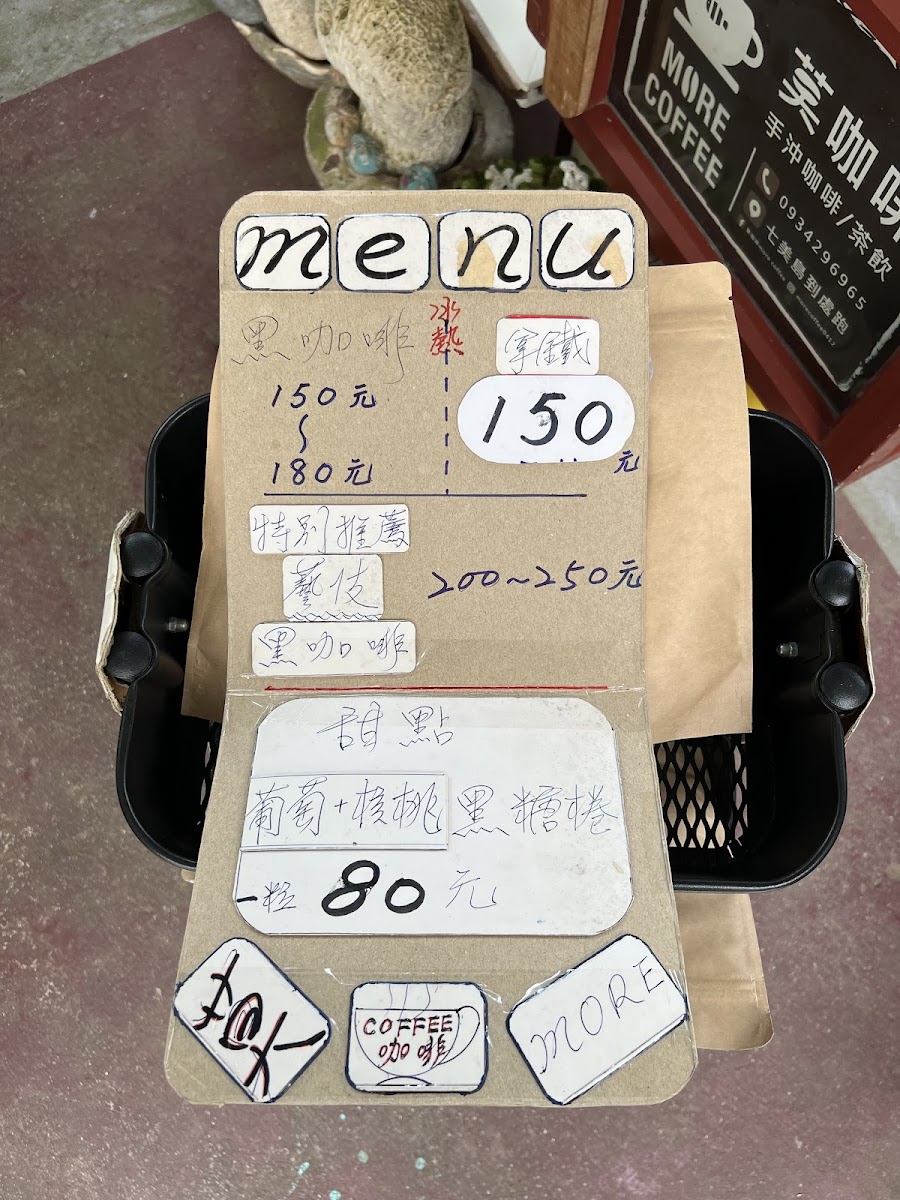 menu
黑咖啡
冰
熱
拿鐵
150元
~
180元
150
元
特別推薦
藝伎
黑咖啡
200~250元
甜點
葡萄+核桃 黑糖捲
一粒 80 元
COFFEE
咖啡
MORE
MORE
COFFEE
芙咖啡
手沖咖啡/茶飲
0934296965
七美島到處跑